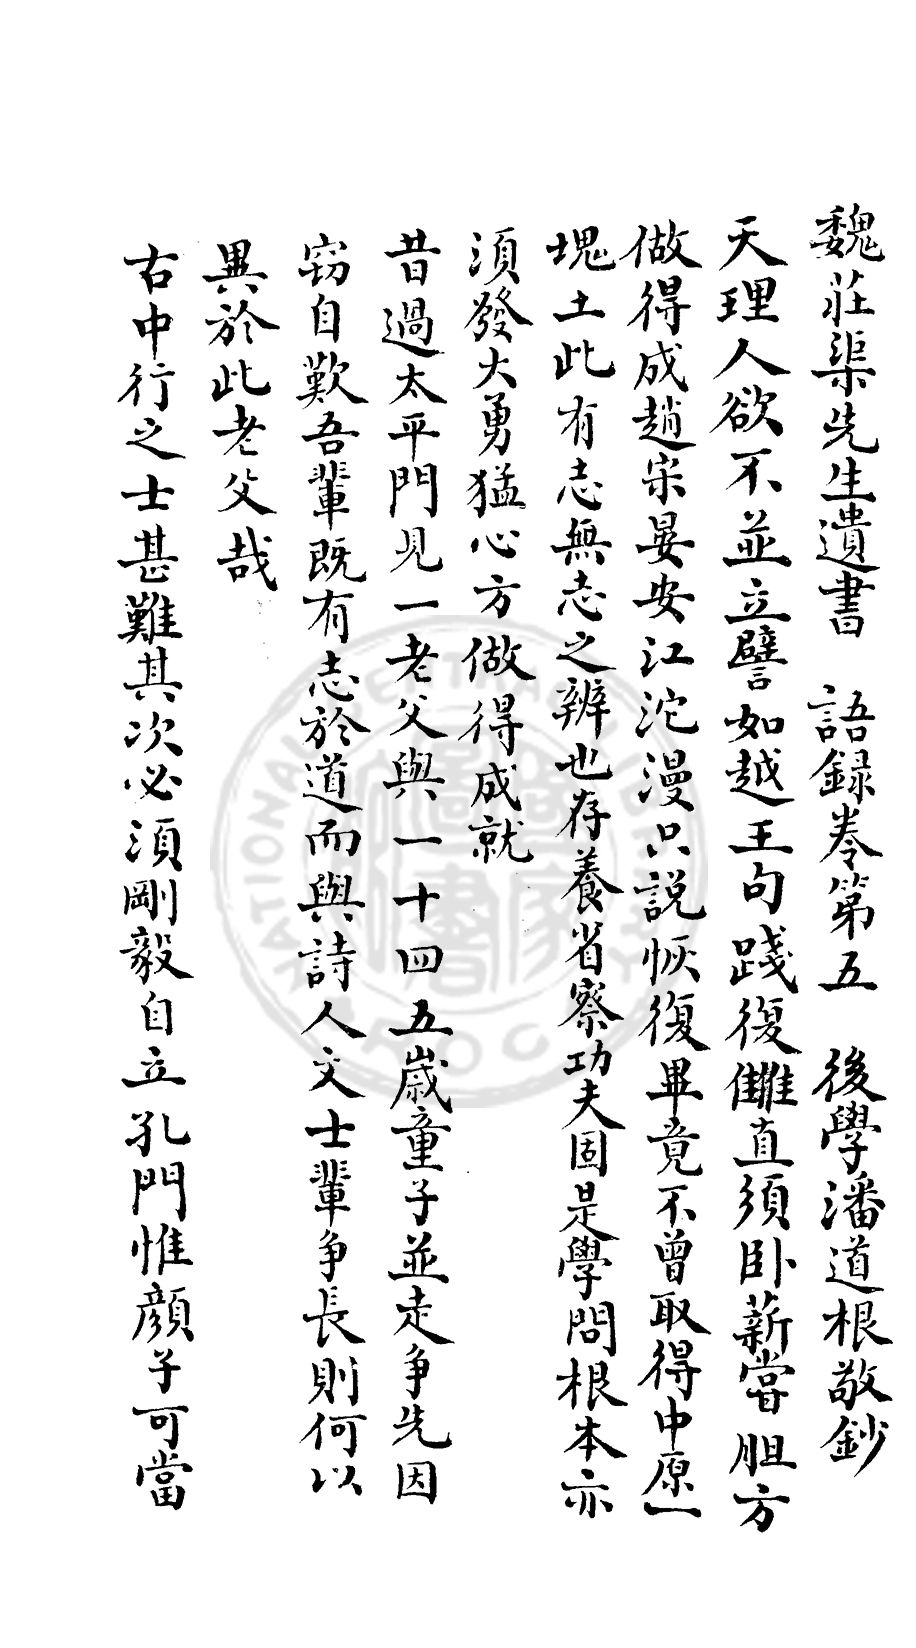 魏莊渠先生遺書　語録卷第五　後學潘道根敬鈔
天理人欲不並立譬如越王句踐復讎直須臥薪嘗胆方
做得成趙宋晏安江沱漫只説恢復畢竟不曾取得中原一
塊土此有志無志之辨也存養省察功夫固是學問根本亦
須發大勇猛心方做得成就
昔過太平門見一老父與一十四五歲童子並走争先因
窃自歎吾輩既有志於道而與詩人文士輩争長則何以
異於此老父哉
右中行之士甚難其次必須剛毅自立孔門惟顔子可當